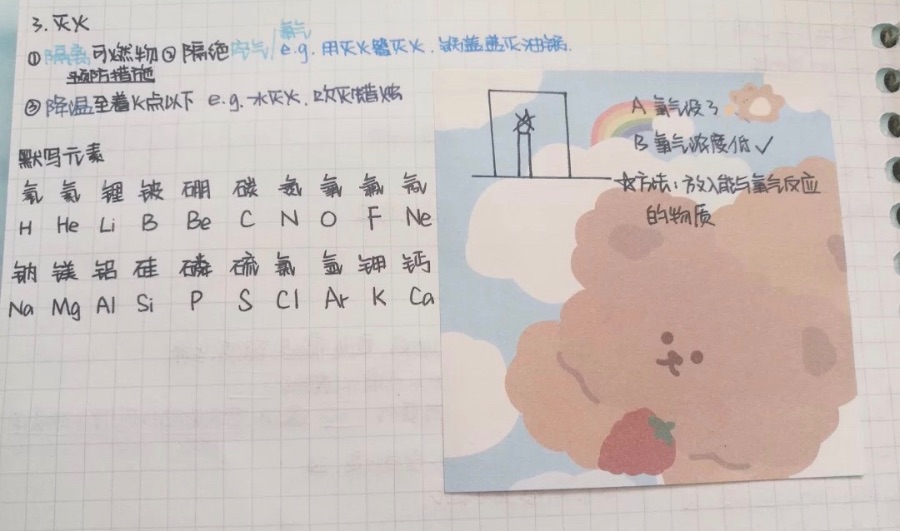 3. 灭火
①隔离可燃物 ②隔绝空气/氧气 e.g. 用灭火器灭火. 锅盖盖灭油锅.
预防措施
③降温至着火点以下 e.g. 水灭火. 吹灭蜡烛
默写元素
氢 氦 锂 铍 硼 碳 氮 氧 氟 氖
H He Li B Be C N O F Ne
钠 镁 铝 硅 磷 硫 氯 氩 钾 钙
Na Mg Al Si P S Cl Ar K Ca
A 氧气没了
B 氧气浓度低✓
☆方法：放入能与氧气反应
的物质